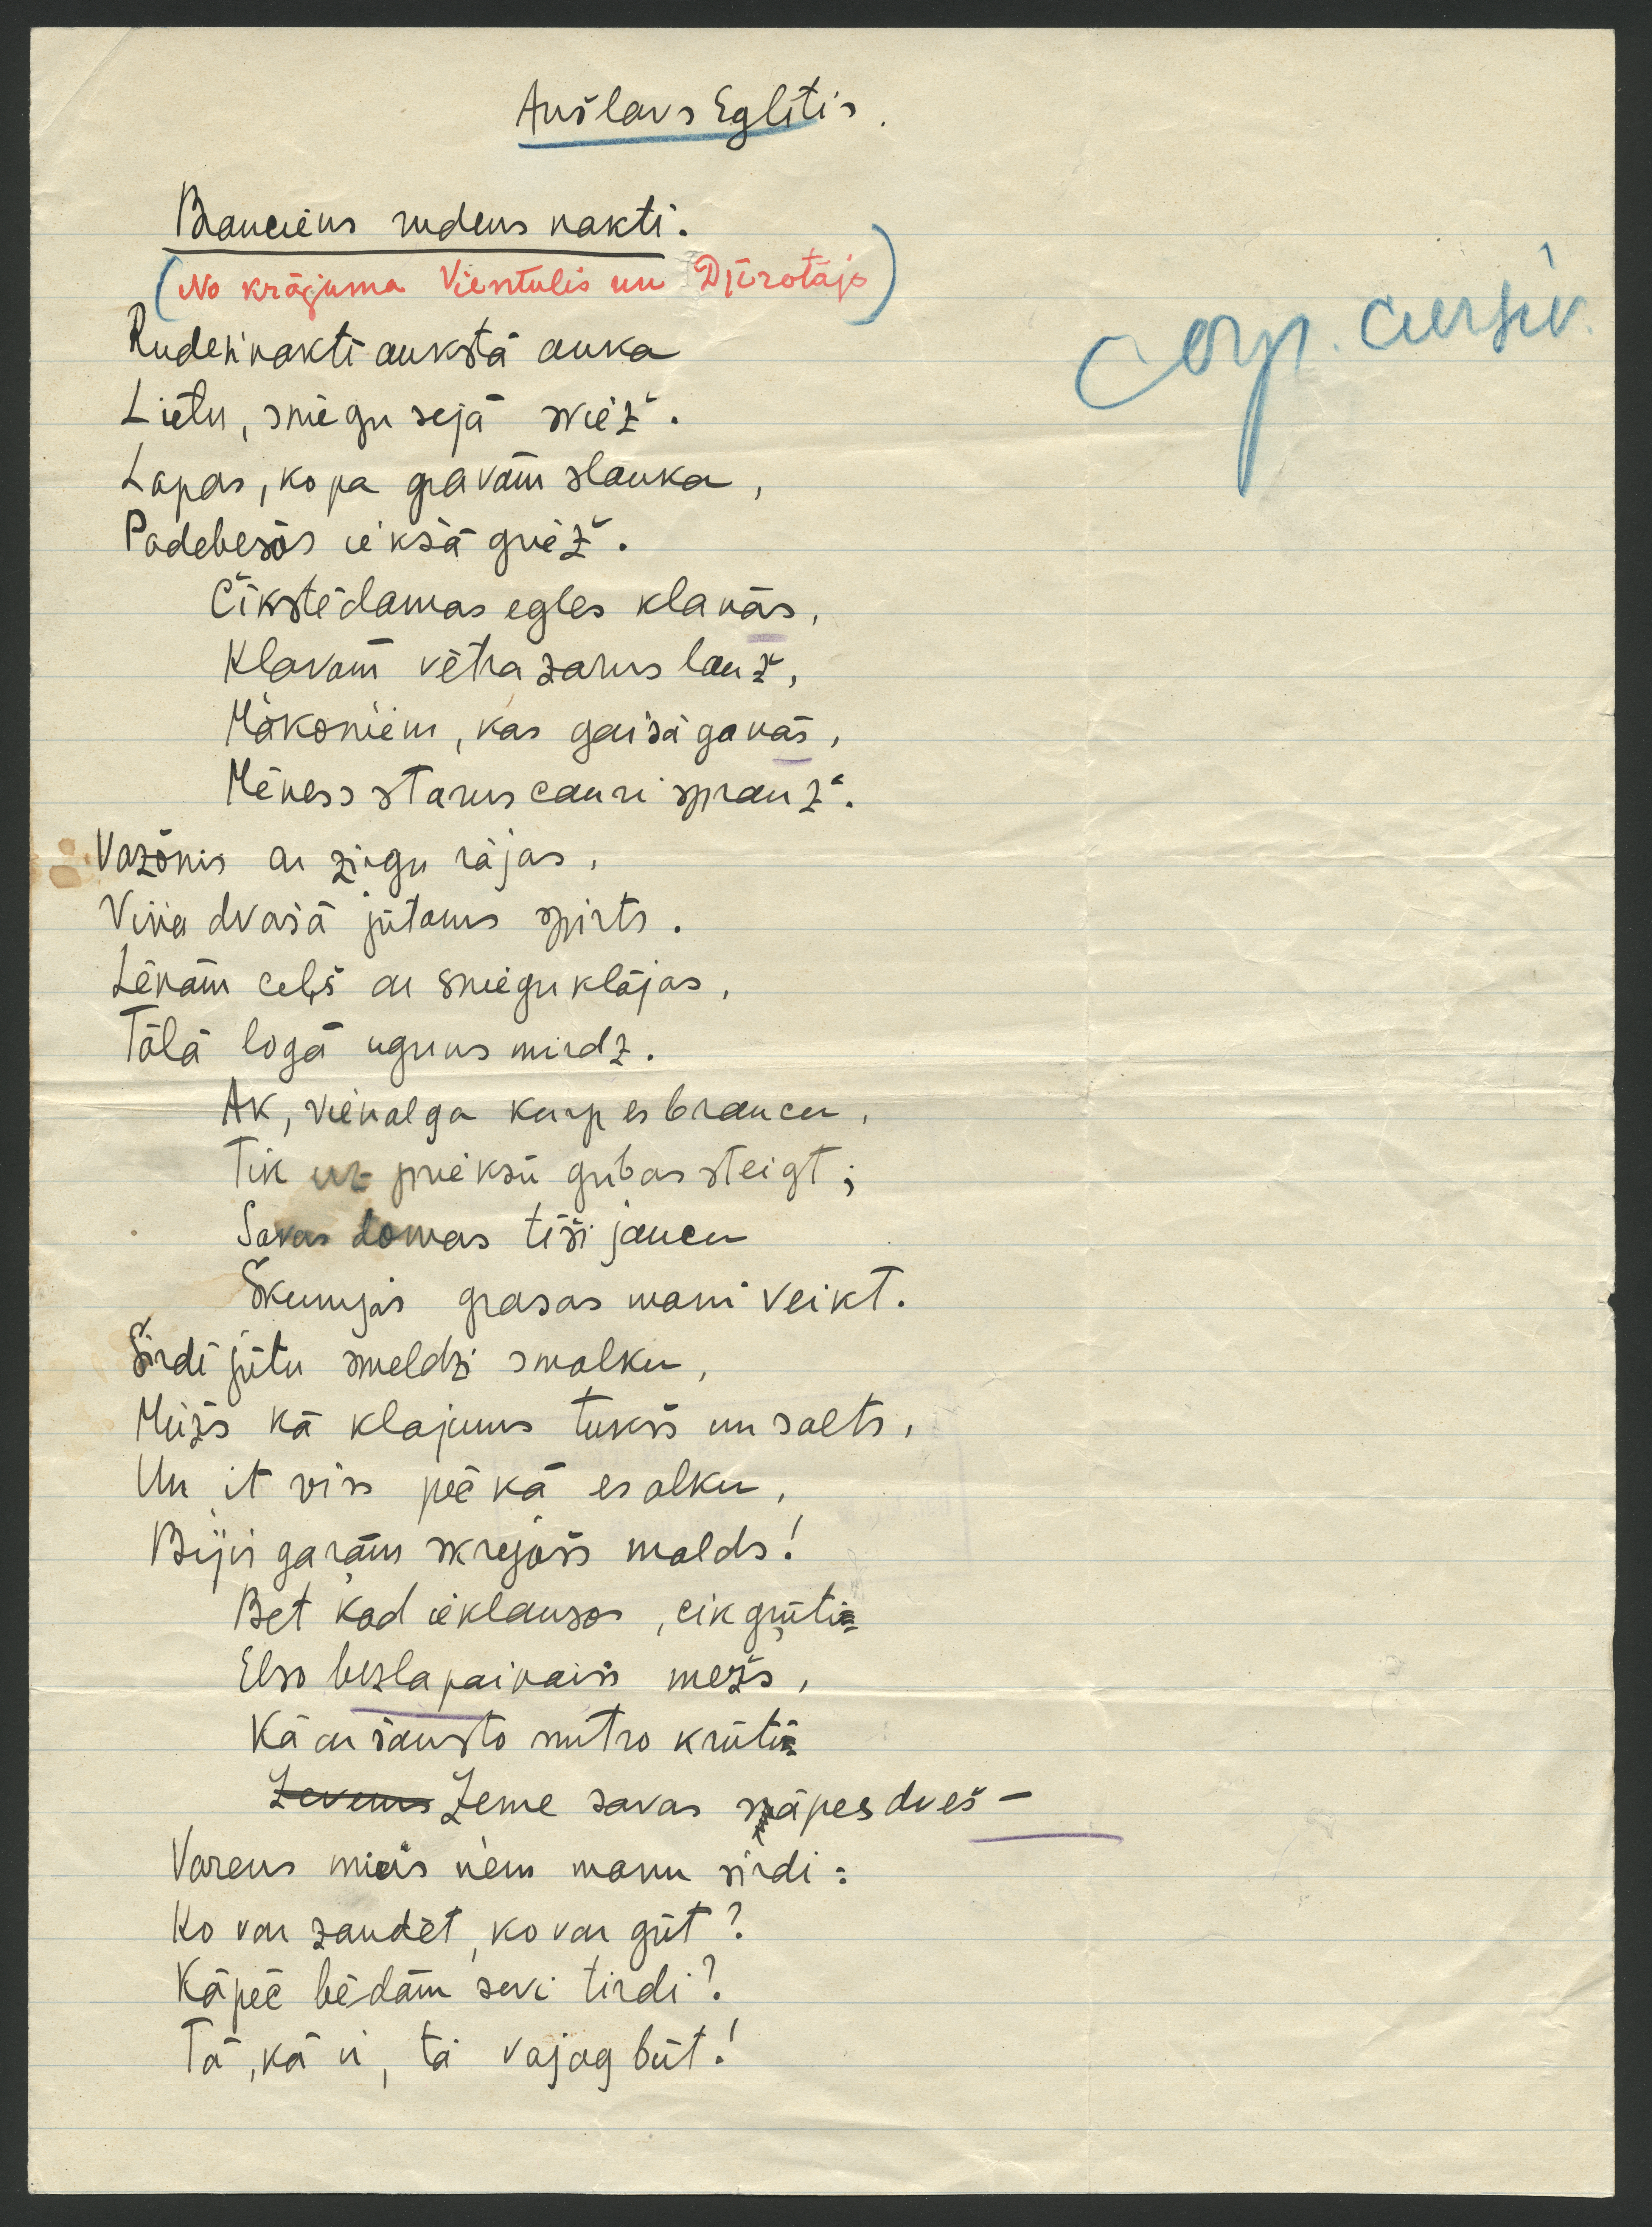 Anšlavs Eglītis.
Brauciens rudens naktī.
(No krājuma Vientulis un Djūrotājs)
corp. cursiv.
Rudeņnaktī aukstā auka
Lietu, sniegu sejā sviež.
Lapas, ko pa gravām slauka,
Padebešos iekšā griež.
Čīkstēdamas egles klanās,
Klavām vētra zarus lauž,
Mākoņiem, kas gaisā ganās,
Mēness starus cauri sprauž.
Vazonis ar zirgu rājas,
Viņa dvašā jūtams spirts.
Lēnām ceļš ar sniegu klājas,
Tālā logā uguns mirdz.
Ak, vienalga kurp es braucu,
Tik uz priekšu gribas steigt;
Savas domas tīši jaucu
Skumjas grasas mani veikt.
Sirdī jūtu smeldzi smalku,
Mūžs kā klajums tukšs un salts,
Un it viss pēc kā es alku,
Bijis garām skrejošs malds!
Bet kad ieklausos, cik grūti
Elso bezlapainais mežs,
Kā ar šausto mitro krūti
Zeme savas sāpes dveš –
Varens miers ņem manu sirdi:
Ko var zaudēt, ko var gūt?
Kāpēc bēdām sevi tirdi?
Tā, kā ir, tā vajag būt!